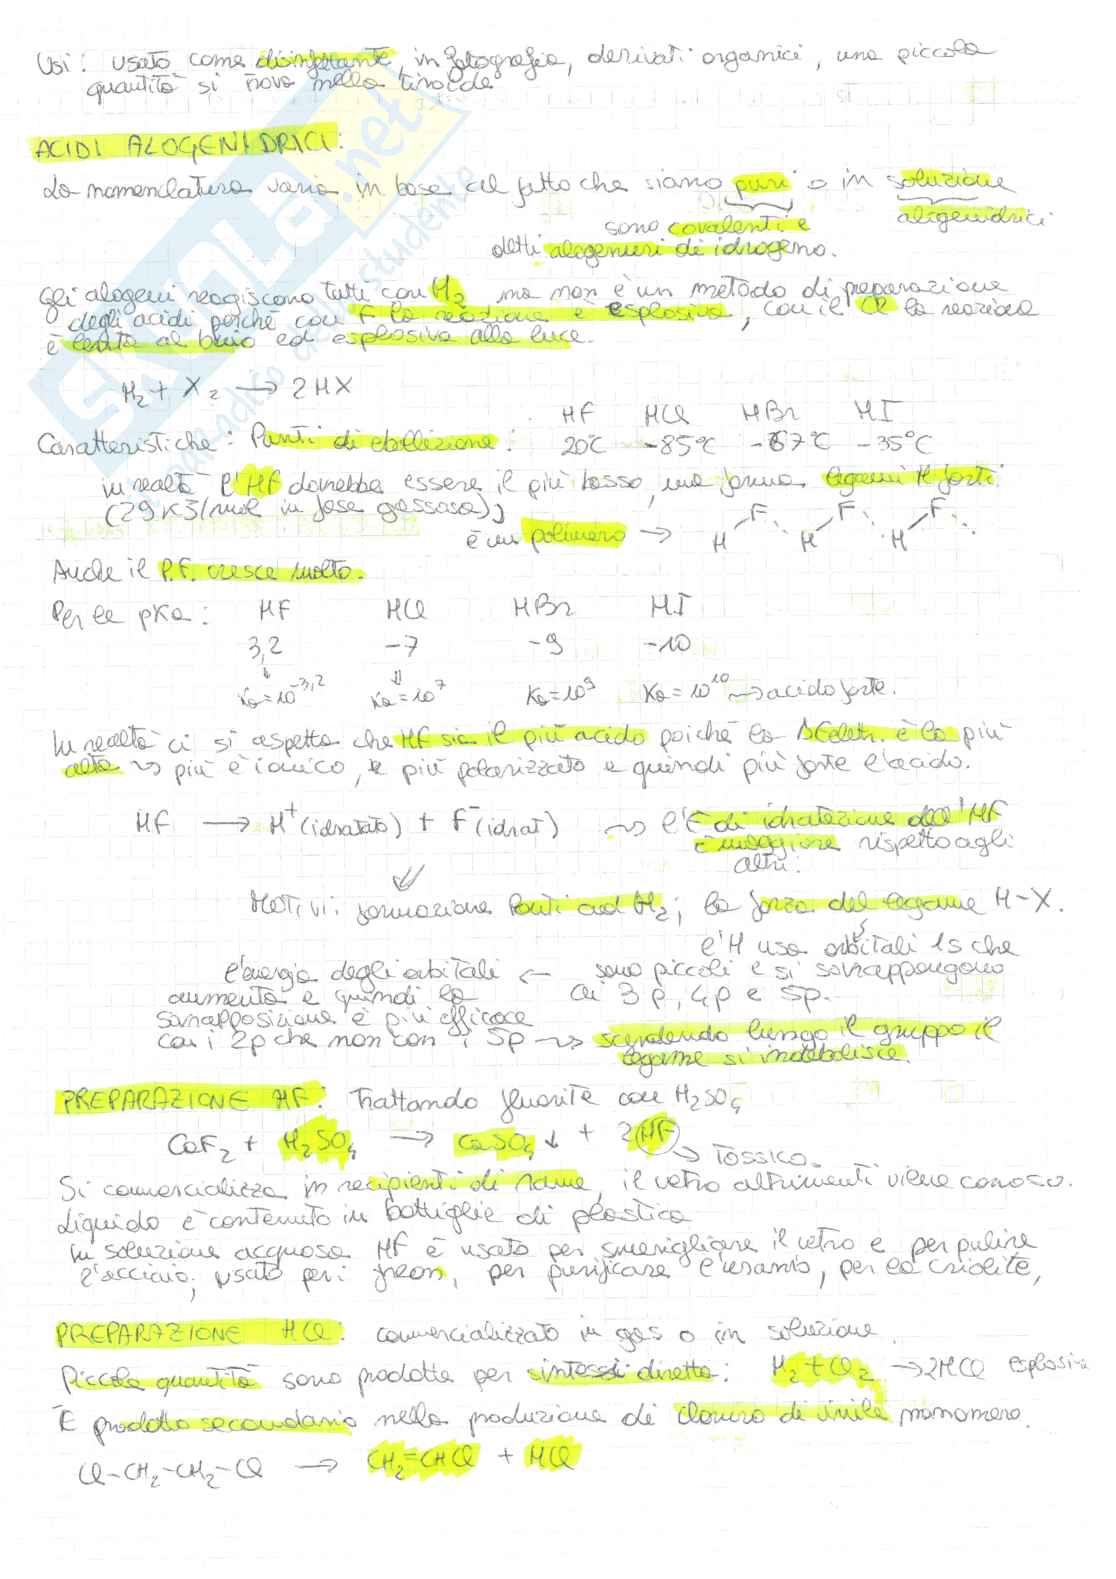 Usi: usato come disinfettante, in fotografia, derivati organici, una piccola
quantità si trova nella tiroide
ACIDI ALOGENIDRICI:
La nomenclatura varia in base al fatto che siano puri o in soluzione
sono covalenti e alogenidrici
detti alogenuri di idrogeno.
Gli alogeni reagiscono tutti con H2 ma non è un metodo di preparazione
degli acidi poiché con F la reazione è esplosiva, con il Cl la reazione
è lenta al buio ed esplosiva alla luce.
H2 + X2 → 2HX
HF HCl HBr HI
Caratteristiche: Punti di ebollizione: 20°C -85°C -67°C -35°C
in realtà l'HF dovrebbe essere il più basso, ma forma legami H forti
(29 KJ/mol in fase gassosa),
è un polimero → H F H F H F
Anche il P.F. cresce molto.
Per le pKa: HF HCl HBr HI
3,2 -7 -9 -10
Ka=10^-3,2 Ka=10^7 Ka=10^9 Ka=10^10 → acido forte.
In realtà ci si aspetta che HF sia il più acido poiché la ΔEletn. è la più
alta → più è ionico, è più polarizzato e quindi più forte l'acido.
HF → H+(idratato) + F-(idrat) → l'E di idratazione dell'HF
è maggiore rispetto agli
altri.
Motivi: formazione Ponti ad H2; la forza del legame H-X.
l'H usa orbitali 1s che
l'energia degli orbitali ← sono piccoli e si sovrappongono
aumenta e quindi la ai 3p, 4p e 5p.
sovrapposizione è più efficace
con i 2p che non con i 5p → scendendo lungo il gruppo il
legame si indebolisce.
PREPARAZIONE HF: Trattando fluorite con H2SO4
CaF2 + H2SO4 → CaSO4↓ + 2HF
→ TOSSICO.
Si commercializza in recipienti di rame, il vetro altrimenti viene corroso.
Liquido è contenuto in bottiglie di plastica
In soluzione acquosa HF è usato per smerigliare il vetro e per pulire
l'acciaio; usato per i freon, per purificare l'uranio, per la criolite,
PREPARAZIONE HCl: commercializzato in gas o in soluzione.
Piccola quantità sono prodotte per sintesi diretta: H2 + Cl2 → 2HCl esplosiva
È prodotto secondario nella produzione di cloruro di vinile monomero.
Cl-CH2-CH2-Cl → CH2=CHCl + HCl